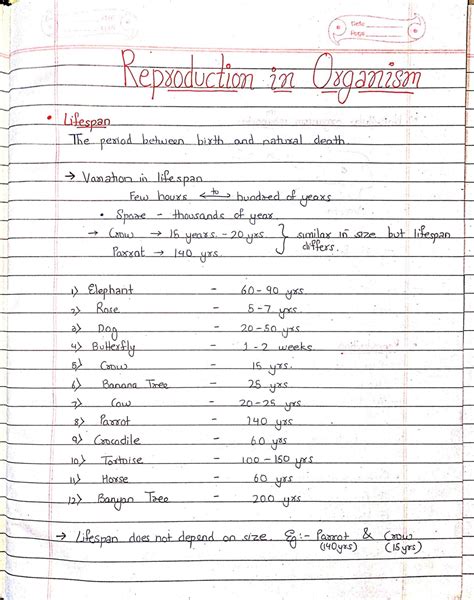 Date
Page
Reproduction in Organism
• Lifespan
The period between birth and natural death.
→ Variation in lifespan
Few hours <-to-> hundred of years
• Spore - thousands of year
→ Crow → 15 years - 20 yrs } similar in size but lifespan differs.
Parrot → 140 yrs.
1) Elephant - 60-90 yrs.
2) Rose - 5-7 yrs.
3) Dog - 20-50 yrs
4) Butterfly - 1-2 weeks.
5) Crow - 15 yrs.
6) Banana Tree - 25 yrs
7) Cow - 20-25 yrs
8) Parrot - 140 yrs
9) Crocodile - 60 yrs
10) Tortoise - 100-150 yrs
11) Horse - 60 yrs
12) Banyan Tree - 200 yrs
→ Lifespan does not depend on size. Eg:- Parrot & Crow
(140yrs) (15yrs)